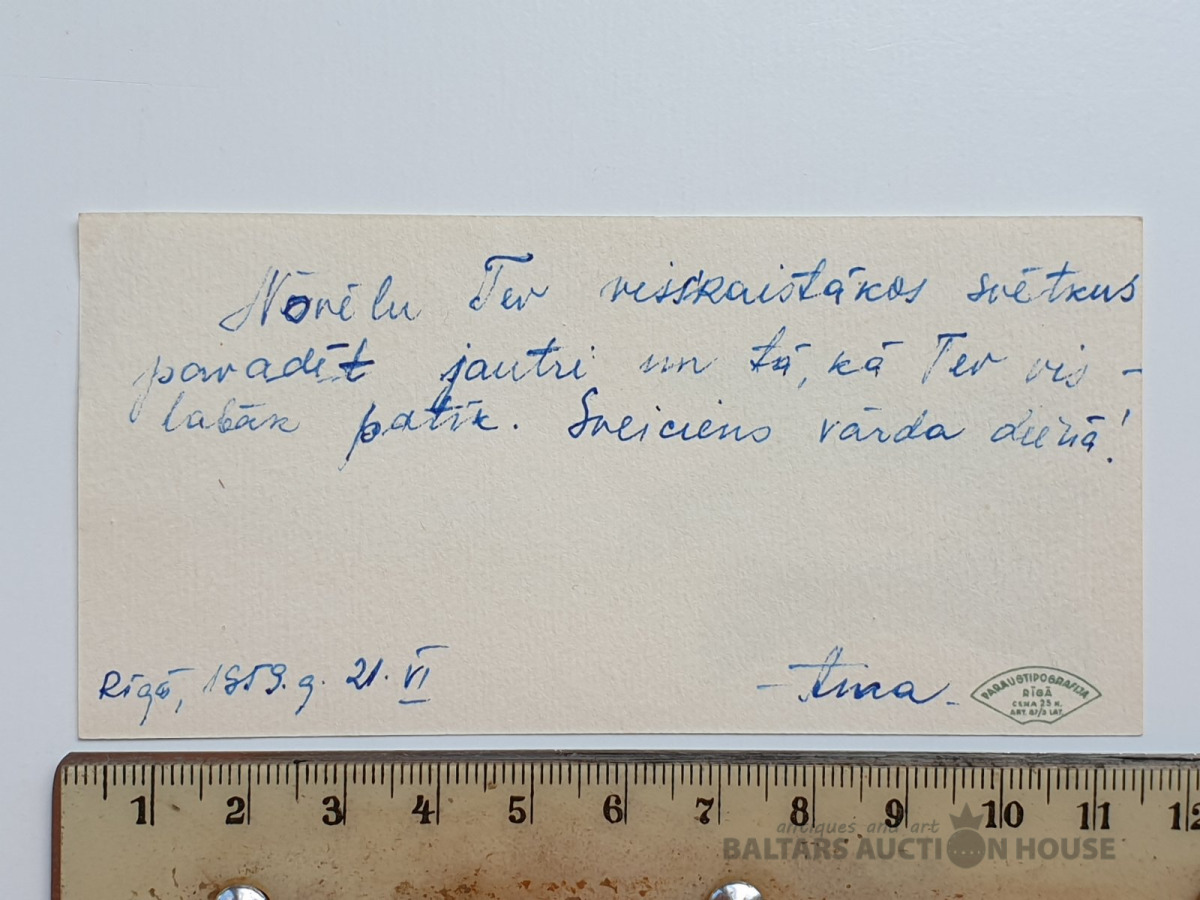 Novēlu Tev visskaistākos svētkus
pavadīt jautri un tā, kā Tev vis-
labāk patīk. Sveiciens vārda dienā!
Rīgā, 1959. g. 21. VI
PARAUGTIPOGRAFIJA
RĪGĀ
CENA 25 K.
ART. 87/3 LAT.
1 2 3 4 5 6 7 8 9 10 11 12
antiques and art
BALTARS AUCTION HOUSE